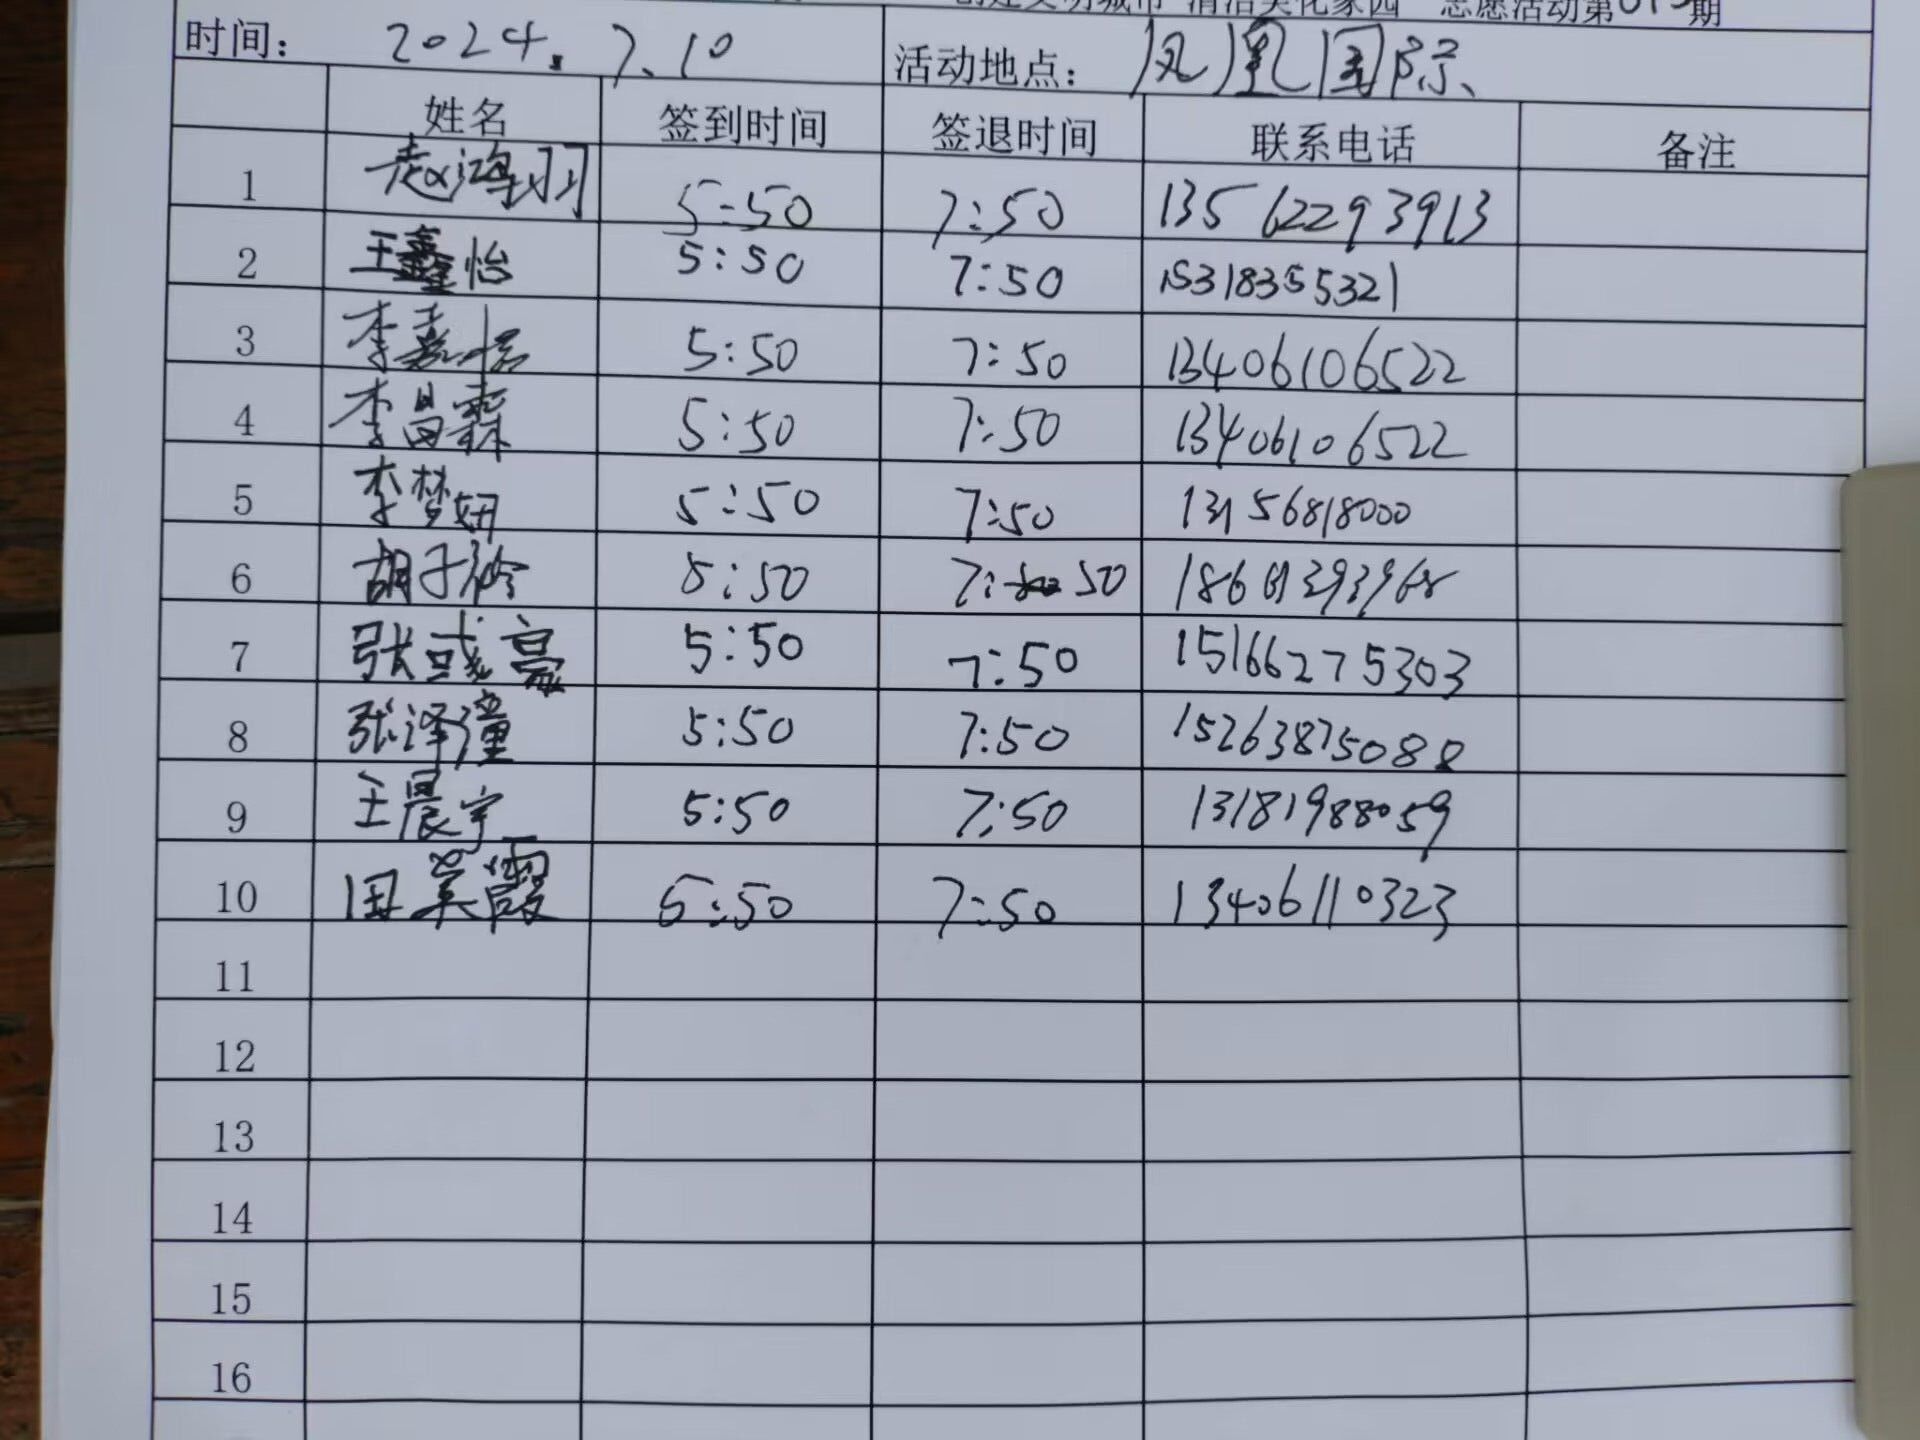 创建文明城市 清洁美化家园 志愿活动第 期
时间： 2024.7.10 活动地点： 凤凰国际
姓名 签到时间 签退时间 联系电话 备注
1 赵鸿羽 5:50 7:50 13562293913
2 王鑫怡 5:50 7:50 15318355321
3 李嘉怡 5:50 7:50 13406106522
4 李昌霖 5:50 7:50 13406106522
5 李梦妞 5:50 7:50 13156818000
6 胡子 5:50 7:50
7 张彧豪 5:50 7:50 15166275303
8 张泽潼 5:50 7:50 15263875088
9 王晨宇 5:50 7:50 13181988059
10 田英霞 5:50 7:50 13406110323
11
12
13
14
15
16